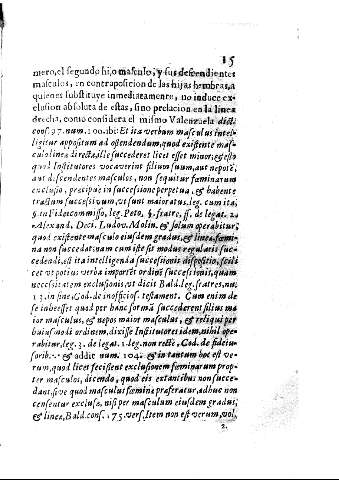 15
mero, el segundo hijo masculo, y sus descendientes
masculos, en contraposicion de las hijas hembras, a
quienes substituye inmediatamente, no induce ex-
clusion absoluta de estas, sino prelacion en la linea
drecha, como considera el mismo Valenzuela dict.
cons. 97. num. 100. ibi: Et ita verbum masculus intel-
ligitur appositum ad ostendendum, quod existente mas-
culo linea directa, ille succederet licet esset minor; & esto
quod institutores vocaverint filium suum, aut nepotē,
aut descendentes masculos, non sequitur fœminarum
exclusio, præcipuè in successione perpetua, & habente
tractum successivum, ut sunt maioratus, leg. cum ita,
§. in Fideicommisso, leg. Peto, §. fratre, ff. de legat. 2.
Alexand. Deci. Ludov. Molin. & solum operabitur,
quod existente masculo eiusdem gradus, & linea, fœmi-
na non succedat; nam cum iste sit modus regularis suc-
cedendi, est ita intelligenda successionis dispositio, scili
cet ut potius verba importēt ordinē successionis, quam
necessitatem exclusionis, ut dicit Bald. leg. fratres, nu.
13. in fine, Cod. de inofficios. testament. Cum enim de
se inbeesset quod per hanc formā succederent filius ma
ior masculus, & nepos maior masculus, & reliqui per
huiusmodi ordinem, dixisse Institutores idem, nihil ope-
rabitur, leg. 3. de legat. 1. leg. non rectè, Cod. de fideiu-
sorib. & addit num. 104. & in tantum hoc est ve-
rum, quod licet fecissent exclusionem fœminarum prop-
ter masculos, dicendo, quod eis extantibus non succe-
dant, sive quod masculus fœminæ præferatur, adhuc non
censentur exclusæ, nisi per masculum eiusdem gradus,
& linea, Bald. cons. 175. vers. Item non est verum, vol.
2.